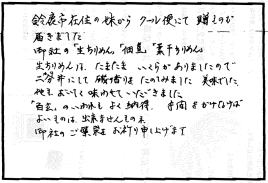 鈴鹿市在住の妹から クール便にて 贈りものが
届きました
御社の「生ちりめん」「佃煮」「素干ちりめん」
生ちりめんは、たまたま いくらがありましたので
二色丼にして 磯香りを たのしみました 美味でした
他も おいしく味わせていただきました
「百玄」のいわれも よく納得、手間をかけなければ
よいものは、出来ませんものネ
御社の ご繁栄を お祈り申し上げます